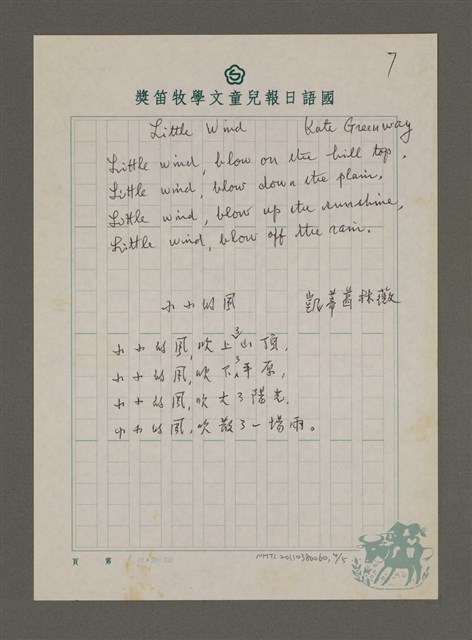 7
國語日報兒童文學牧笛獎
Little Wind Kate Greenway
Little wind, blow on the hill top,
Little wind, blow down the plain,
Little wind, blow up the sunshine,
Little wind, blow off the rain.
小小的風 凱蒂茜林薇
小小的風,吹上了山頂,
小小的風,吹下了平原,
小小的風,吹大了陽光,
小小的風,吹散了一場雨。
頁 第
NMTL20110380060, 4/5